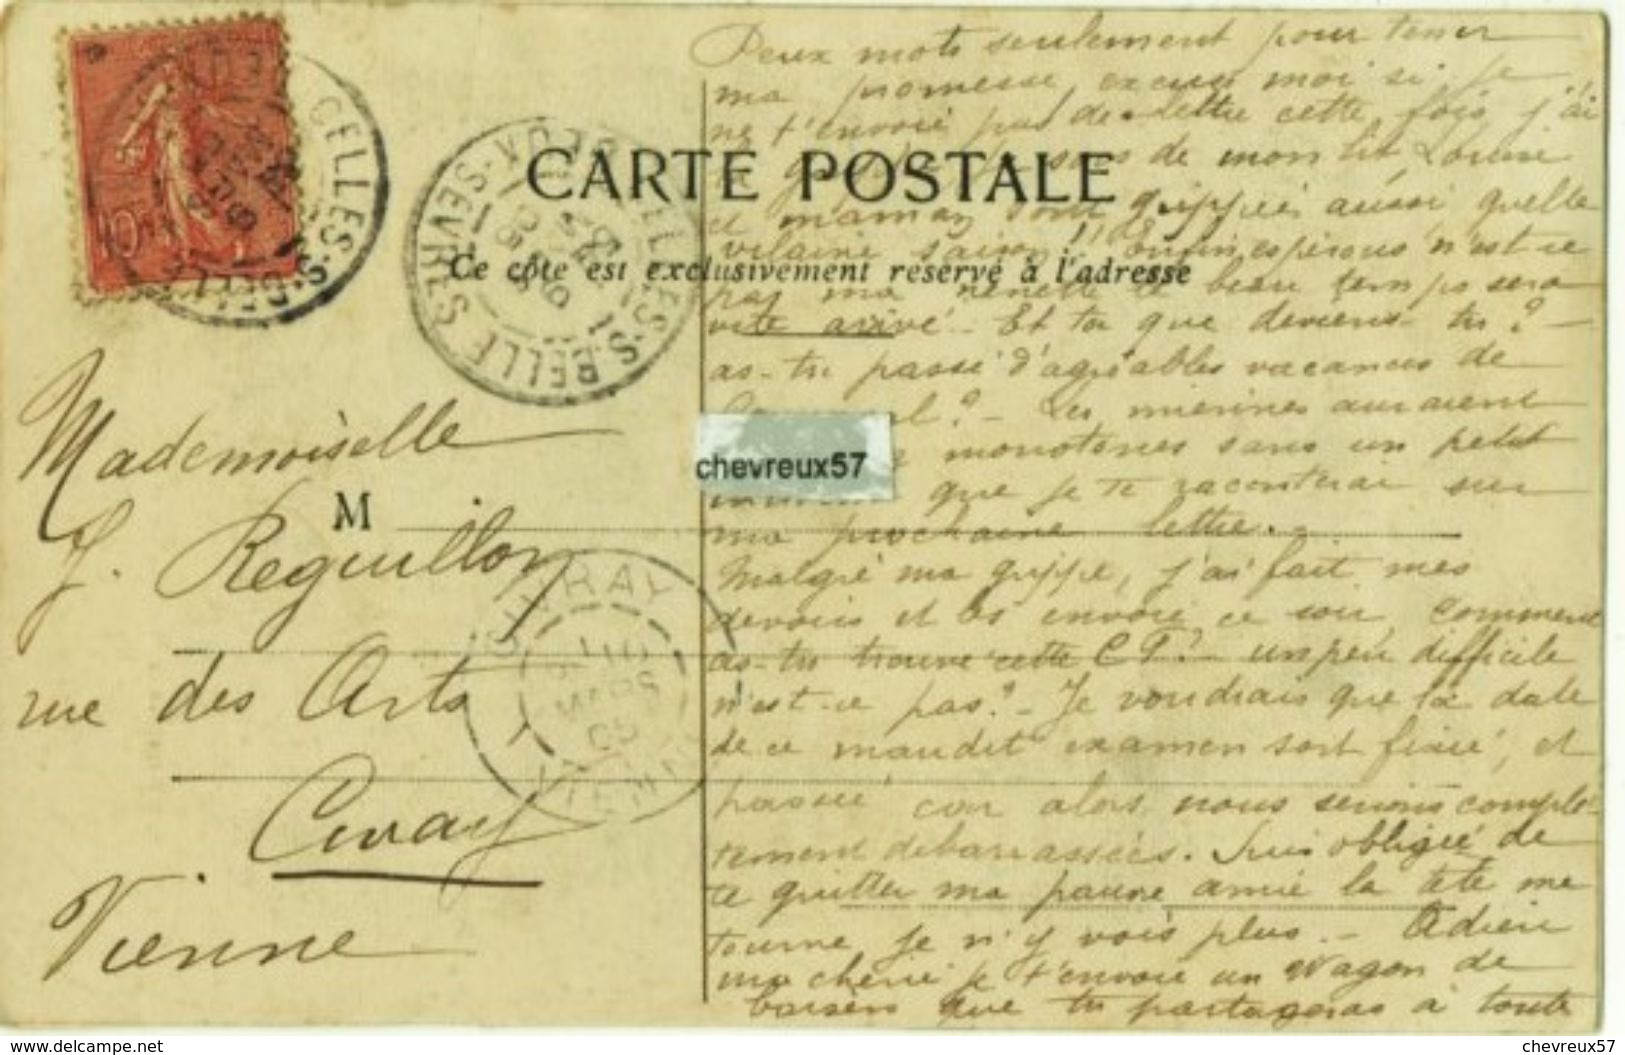 CARTE POSTALE
Ce côté est exclusivement réservé à l'adresse
CELLES-S-BELLE
CELLES-S-BELLE
SEVRES
M
Mademoiselle
J. Reguillon
rue des Arts
Civray
Vienne
CIVRAY
MARS
05
VIENNE
Deux mots seulement pour tenir
ma promesse, excuse moi si je
ne t'envoie pas de lettre cette fois j'ai
de mon lit Louise
et maman sont grippées aussi quelle
vilaine saison! enfin espérons n'est-ce
pas ma nenette le beau temps sera
vite arrivé - Et toi que deviens-tu? -
as-tu passé d'agréables vacances de
? - Les miennes auraient
monotones sans un petit
que je te raconterai sur
ma prochaine lettre.
Malgré ma grippe, j'ai fait mes
devoirs et les envoie ce soir. Comment
as-tu trouvé cette C P? - un peu difficile
n'est-ce pas? - Je voudrais que la date
de ce maudit examen soit fixée, et
passée car alors nous serions complè-
tement débarrassées. Suis obligée de
te quitter ma pauvre amie la tête me
tourne je n'y vois plus. - Adieu
ma chérie je t'envoie un wagon de
baisers que tu partageras à toute
chevreux57
www.delcampe.net
chevreux57